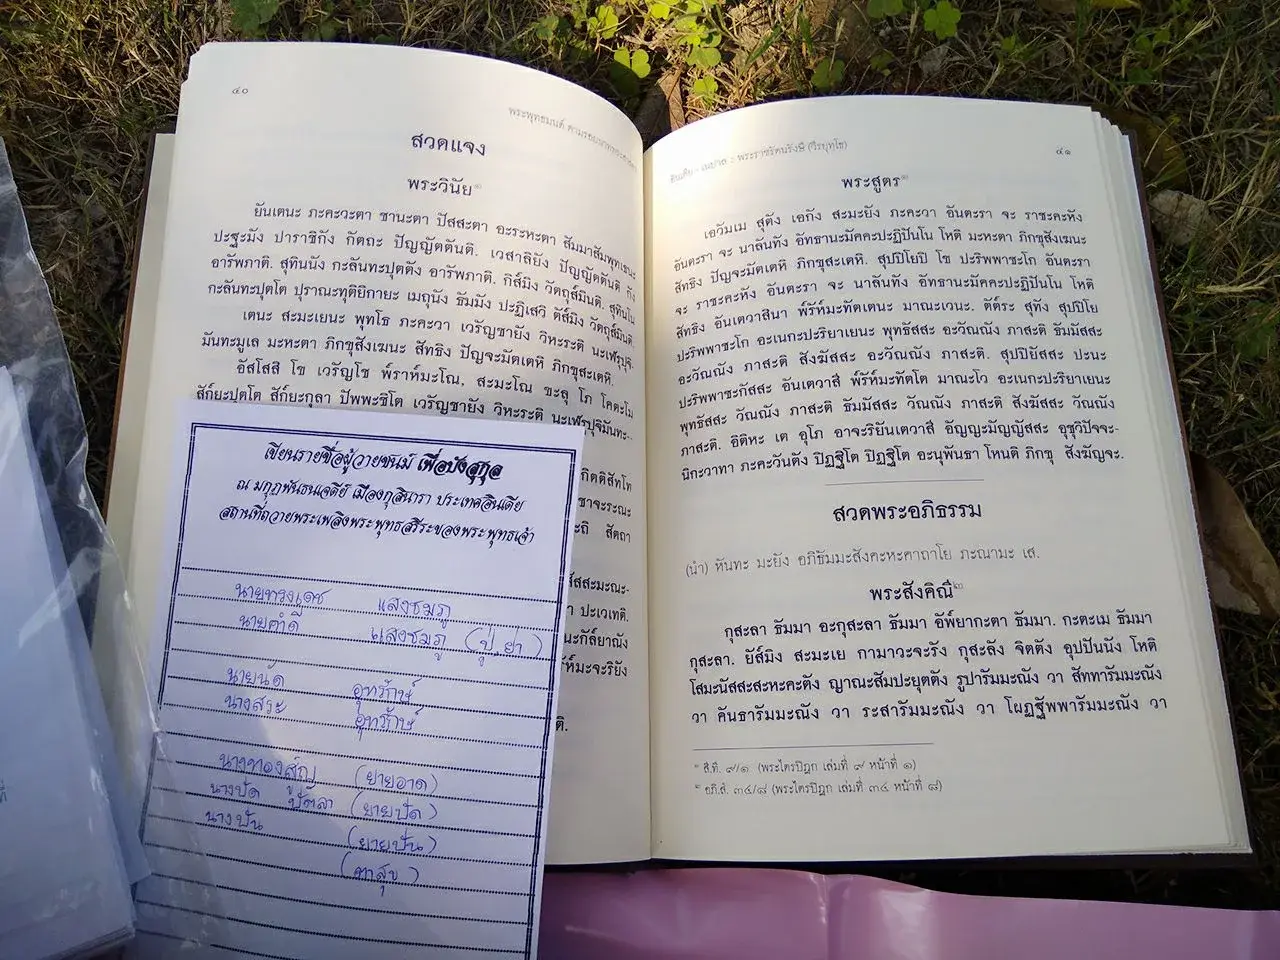 ๔๐
พระพุทธมนต์ ตามรอยบาทพระศาสดา
สวดแจง
พระวินัย๑
ยันเตนะ ภะคะวะตา ชานะตา ปัสสะตา อะระหะตา สัมมาสัมพุทเธนะ
ปะฐะมัง ปาราชิกัง กัตถะ ปัญญัตตันติ. เวสาลิยัง ปัญญัตตันติ กัง
อารัพภาติ. สุทินนัง กะลันทะปุตตัง อารัพภาติ. กิส์มิง วัตถุส์มินติ. สุทินโน
กะลันทะปุตโต ปุราณะทุติยิกายะ เมถุนัง ธัมมัง ปะฏิเสวิ ตัส์มิง วัตถุส์มินติ.
เตนะ สะมะเยนะ พุทโธ ภะคะวา เวรัญชายัง วิหะระติ นะเฬรุปุจิ-
มันทะมูเล มะหะตา ภิกขุสังเฆนะ สัทธิง ปัญจะมัตเตหิ ภิกขุสะเตหิ.
อัสโสสิ โข เวรัญโช พ๎ราห๎มะโณ, สะมะโณ ขะลุ โภ โคตะโม
สัก๎ยะปุตโต สัก๎ยะกุลา ปัพพะชิโต เวรัญชายัง วิหะระติ นะเฬรุปุจิมันทะ-
กิตติสัทโท
ชาจะระณะ
ะถิ สัตถา
ัสสะมะณะ-
า ปะเวเทติ.
นะกัล๎ยาณัง
ห๎มะจะริยัง
ติ.
เขียนรายชื่อผู้วายชนม์ เพื่อบังสุกุล
ณ มกุฏพันธนเจดีย์ เมืองกุสินารา ประเทศอินเดีย
สถานที่ถวายพระเพลิงพระพุทธสรีระของพระพุทธเจ้า
นายทรงเดช แสงชมภู
นายคำดี แสงชมภู (ปู่.ย่า)
นายนัด อุทรักษ์
นางสระ อุทรักษ์
นางทองสู่ญ (ยายอาด)
นางปัด ปัตลา (ยายปัด)
นางปั่น (ยายปั่น)
(ตาสุข)
อินเดีย - เนปาล : พระราชรัตนรังษี (วีรยุทฺโธ)
๔๑
พระสูตร๑
เอวัมเม สุตัง เอกัง สะมะยัง ภะคะวา อันตะรา จะ ราชะคะหัง
อันตะรา จะ นาลันทัง อัทธานะมัคคะปะฏิปันโน โหติ มะหะตา ภิกขุสังเฆนะ
สัทธิง ปัญจะมัตเตหิ ภิกขุสะเตหิ. สุปปิโยปิ โข ปะริพพาชะโก อันตะรา
จะ ราชะคะหัง อันตะรา จะ นาลันทัง อัทธานะมัคคะปะฏิปันโน โหติ
สัทธิง อันเตวาสินา พ๎รัห๎มะทัตเตนะ มาณะเวนะ. ตัต๎ระ สุทัง สุปปิโย
ปะริพพาชะโก อะเนกะปะริยาเยนะ พุทธัสสะ อะวัณณัง ภาสะติ ธัมมัสสะ
อะวัณณัง ภาสะติ สังฆัสสะ อะวัณณัง ภาสะติ. สุปปิยัสสะ ปะนะ
ปะริพพาชะกัสสะ อันเตวาสี พ๎รัห๎มะทัตโต มาณะโว อะเนกะปะริยาเยนะ
พุทธัสสะ วัณณัง ภาสะติ ธัมมัสสะ วัณณัง ภาสะติ สังฆัสสะ วัณณัง
ภาสะติ. อิติหะ เต อุโภ อาจะริยันเตวาสี อัญญะมัญญัสสะ อุชุวิปัจจะ-
นิกะวาทา ภะคะวันตัง ปิฏฐิโต ปิฏฐิโต อะนุพันธา โหนติ ภิกขุ สังฆัญจะ.
สวดพระอภิธรรม
(นำ) หันทะ มะยัง อภิธัมมะสังคะหะคาถาโย ภะณามะ เส.
พระสังคิณี๒
กุสะลา ธัมมา อะกุสะลา ธัมมา อัพ๎ยากะตา ธัมมา. กะตะเม ธัมมา
กุสะลา. ยัส์มิง สะมะเย กามาวะจะรัง กุสะลัง จิตตัง อุปปันนัง โหติ
โสมะนัสสะสะหะคะตัง ญาณะสัมปะยุตตัง รูปารัมมะณัง วา สัททารัมมะณัง
วา คันธารัมมะณัง วา ระสารัมมะณัง วา โผฏฐัพพารัมมะณัง วา
๑ สี.ที. ๙/๑ (พระไตรปิฎก เล่มที่ ๙ หน้าที่ ๑)
๒ อภิ.สํ. ๓๔/๘ (พระไตรปิฎก เล่มที่ ๓๔ หน้าที่ ๘)